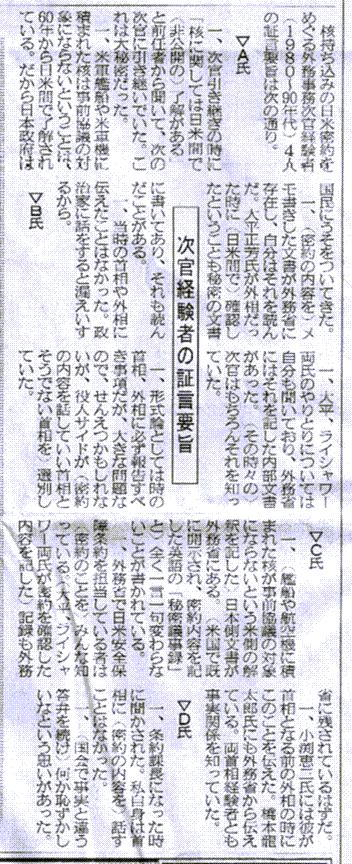 次官経験者の証言要旨
核持ち込みの日米密約を
めぐる外務事務次官経験者
（1980～90年代）4人
の証言要旨は次の通り。
▽A氏
一、次官引き継ぎの時に
「核に関しては日米間で
（非公開の）了解がある」
と前任者から聞いて、次の
次官に引き継いでいた。こ
れは大秘密だった。
一、米軍艦船や米軍機に
積まれた核は事前協議の対
象にならないということは、
60年から日米間で了解され
ている。だから日本政府は
国民にうそをついてきた。
一、（密約の内容を）メ
モ書きした文書が外務省に
存在し、自分はそれを読ん
だ。大平正芳氏が外相だっ
た時に（日米間で）確認し
たということも秘密の文書
に書いてあり、それも読ん
だことがある。
一、当時の首相や外相に
伝えたことはなかった。政
治家に話をすると漏えいす
るから。
▽B氏
一、大平、ライシャワー
両氏のやりとりについては
自分も聞いており、外務省
にはそれを記した内部文書
があった。（その時々の）
次官はもちろんそれを知っ
ていた。
一、形式論としては時の
首相、外相に必ず報告すべ
き事項だが、大きな問題な
ので、せんえつかもしれな
いが、役人サイドが、（密約
の内容を話していい首相と
そうでない首相を）選別し
ていた。
▽C氏
一、（艦船や航空機に積
まれた核が事前協議の対象
にならないという米側の解
釈を記した）日本側文書が
外務省にある。（米国で既
に開示され、密約内容を記
した英語の「秘密議事録」
と）全く一言一句変わらな
いことが書かれている。
一、外務省で日米安全保
障条約を担当している者は
（密約のことを）みんな知
っている。（大平、ライシャ
ワー両氏が密約を確認した
内容を記した）記録も外務
省に残されているはずだ。
一、小渕恵三氏には彼が
首相となる前の外相の時に
このことを伝えた。橋本龍
太郎氏にも外務省から伝え
ている。両首相経験者とも
事実関係を知っていた。
▽D氏
一、条約課長になった時
に聞かされた。私自身は首
相に（密約の内容を）話す
ことはなかった。
一、（国会で事実と違う
答弁を続け）何か恥ずかし
いなという思いがあった。